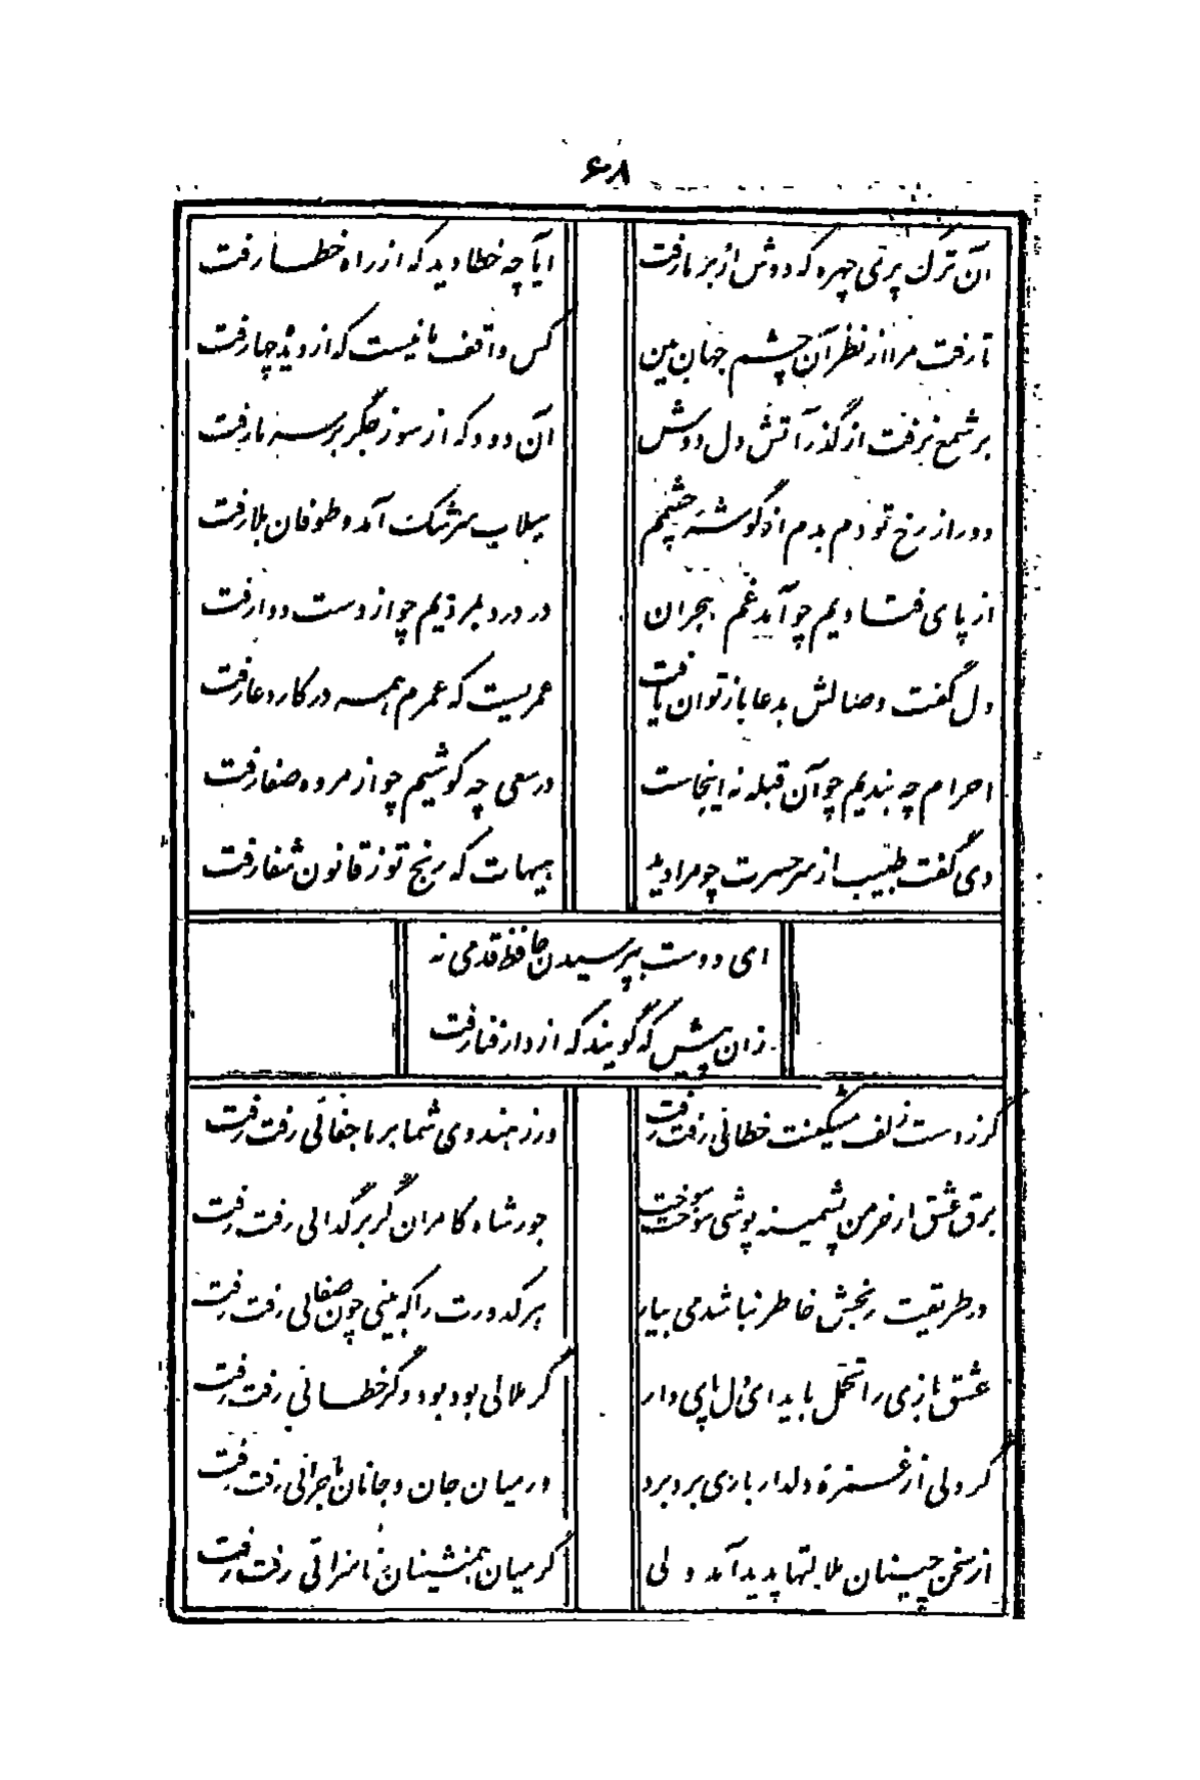 ۶۸
آن ترک پری چهره که دوش از بر ما رفت
آیا چه خطا دید که از راه خطا رفت
تا رفت مرا از نظر آن چشم جهان بین
کس واقف ما نیست که از دیده چها رفت
بر شمع نرفت از گذر آتش دل دوش
آن دود که از سوز جگر بر سر ما رفت
دور از رخ تو دم بدم از گوشه چشمم
سیلاب سرشک آمد و طوفان بلا رفت
از پای فتادیم چو آمد غم هجران
در درد بمردیم چو از دست دوا رفت
دل گفت وصالش بدعا باز توان یافت
عمریست که عمرم همه در کار دعا رفت
احرام چه بندیم چو آن قبله نه اینجاست
در سعی چه کوشیم چو از مروه صفا رفت
دی گفت طبیب از سر حسرت چو مرا دید
هیهات که رنج تو ز قانون شفا رفت
ای دوست بپرسیدن حافظ قدمی نه
زان پیش که گویند که از دار فنا رفت
گر ز دست زلف مشکینت خطائی رفت رفت
ور ز هندوی شما بر ما جفائی رفت رفت
برق عشق ار خرمن پشمینه پوشی سوخت سوخت
جور شاه کامران گر بر گدائی رفت رفت
در طریقت رنجش خاطر نباشد می بیار
هر کدورت را که بینی چون صفائی رفت رفت
عشق بازی را تحمل باید ای دل پای دار
گر ملالی بود بود و گر خطائی رفت رفت
گر دلی از غمزه دلدار باری برد برد
در میان جان و جانان ماجرائی رفت رفت
از سخن چینان ملالتها پدید آمد ولی
گر میان همنشینان ناسزائی رفت رفت